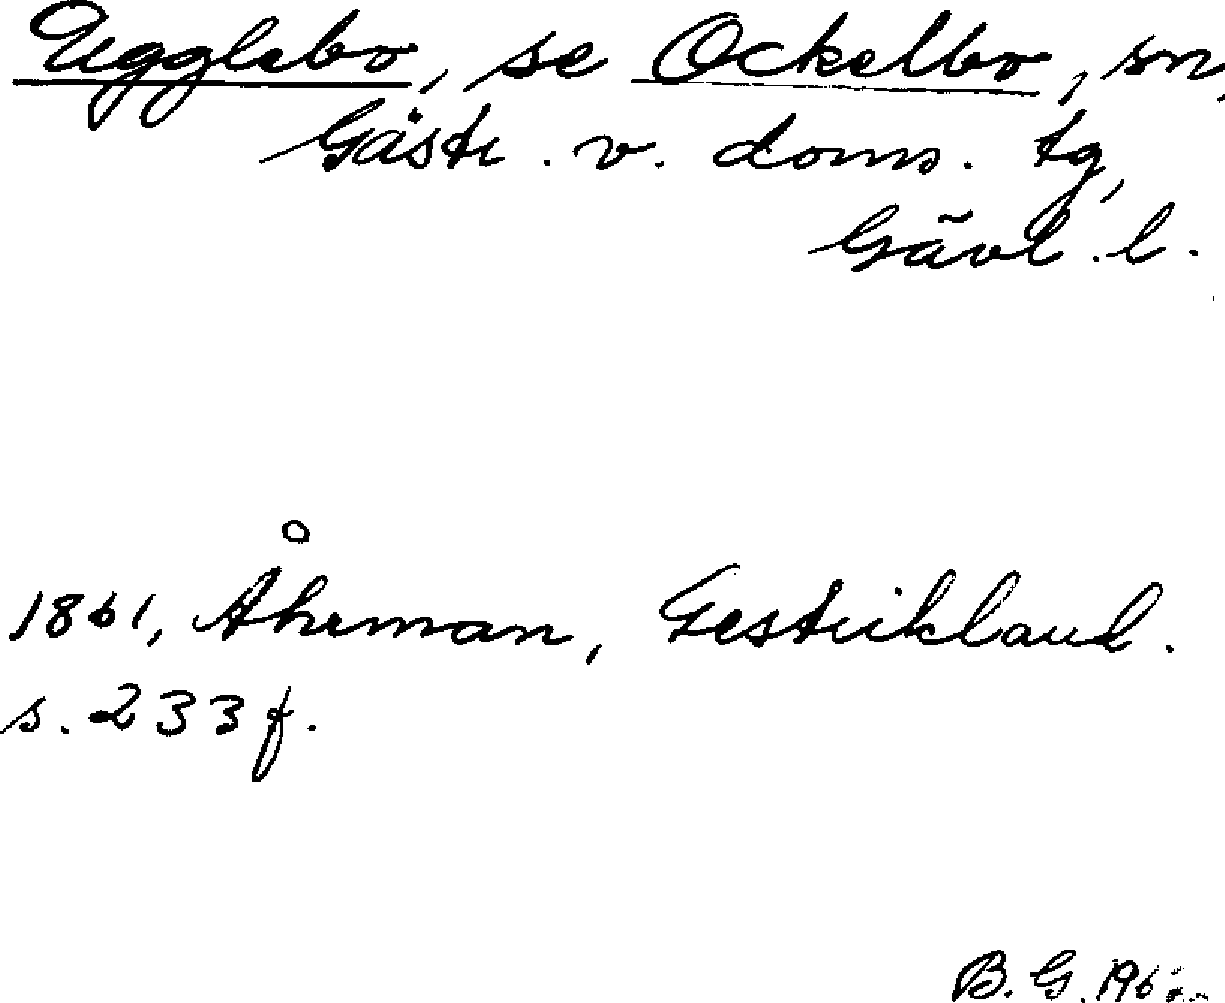 Ugglebo, se Ockelbo, sn,
Gästr. v. doms. tg,
Gävl. l.
1861, Åhrman, Gestrikland.
s. 233 f.
B. G.